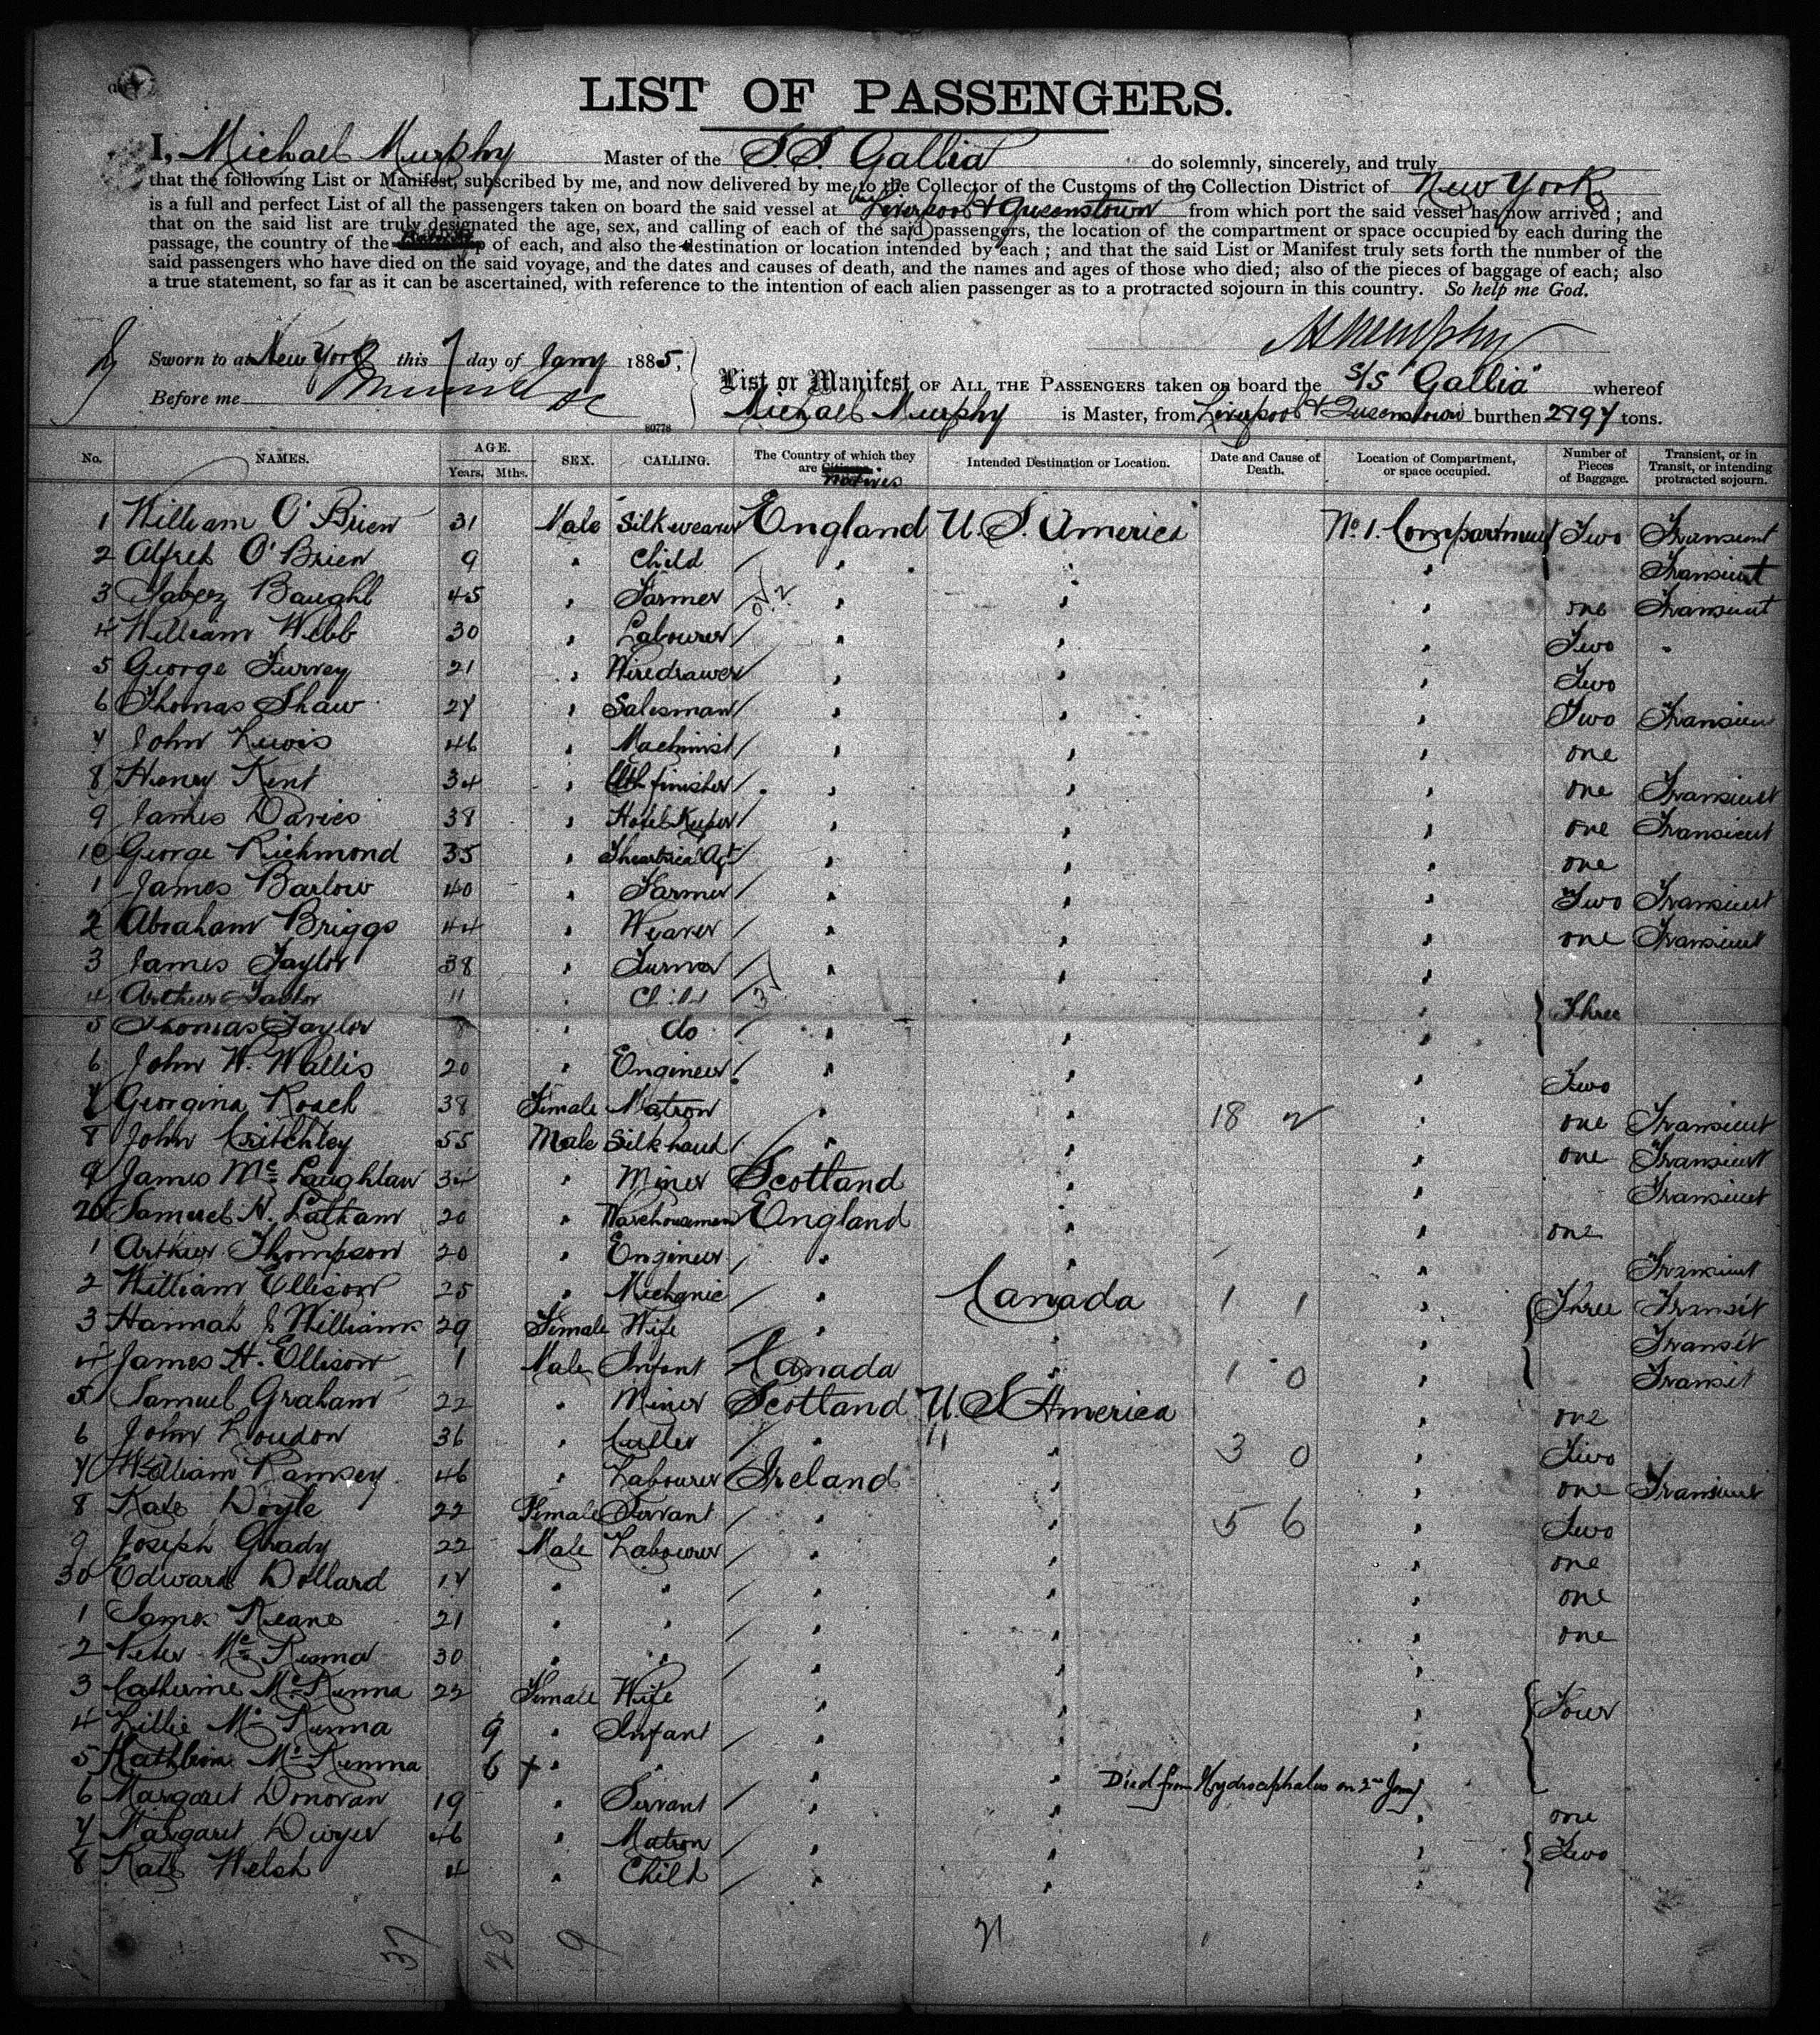 LIST OF PASSENGERS.
I, Michael Murphy Master of the SS. Gallia do solemnly, sincerely, and truly
that the following List or Manifest, subscribed by me, and now delivered by me to the Collector of the Customs of the Collection District of New York
is a full and perfect List of all the passengers taken on board the said vessel at Liverpool & Queenstown from which port the said vessel has now arrived; and
that on the said list are truly designated the age, sex, and calling of each of the said passengers, the location of the compartment or space occupied by each during the
passage, the country of the of each, and also the destination or location intended by each; and that the said List or Manifest truly sets forth the number of the
said passengers who have died on the said voyage, and the dates and causes of death, and the names and ages of those who died; also of the pieces of baggage of each; also
a true statement, so far as it can be ascertained, with reference to the intention of each alien passenger as to a protracted sojourn in this country. So help me God.
M Murphy
Sworn to at New York this 7 day of Jany 1885,
Before me
List or Manifest OF ALL THE PASSENGERS taken on board the S/S "Gallia" whereof
Michael Murphy is Master, from Liverpool & Queenstown burthen 2897 tons.
80778
No. NAMES. AGE. Years. Mths. SEX. CALLING. The Country of which they are Citizens. natives Intended Destination or Location. Date and Cause of Death. Location of Compartment, or space occupied. Number of Pieces of Baggage. Transient, or in Transit, or intending protracted sojourn.
1 William O'Brien 31 Male Silk weaver England U.S. America No. 1. Compartment Two Transient
2 Alfred O'Brien 9 " Child / " " " Transient
3 Jabez Baughl 45 " Farmer / " " " one Transient
4 William Webb 30 " Labourer / " " " Two "
5 George Turvey 21 " Wiredrawer / " " " Two
6 Thomas Shaw 27 " Salesman / " " " Two Transient
7 John Lewis 46 " Machinist / " " " one
8 Henry Kent 34 " Clth finisher / " " " one Transient
9 James Davies 38 " Hotel Keeper / " " " one Transient
10 George Richmond 35 " Theatrical Agt / " " " one
1 James Barlow 40 " Farmer / " " " Two Transient
2 Abraham Briggs 44 " Weaver / " " " one Transient
3 James Taylor 38 " Turner / " " "
4 Arthur Taylor 11 " Child / " " " Three
5 Thomas Taylor 8 " do / " " "
6 John W. Wallis 20 " Engineer / " " " Two
7 Georgina Roach 38 Female Matron " " 18 2 " one Transient
8 John Critchley 55 Male Silk hand / " " " one Transient
9 James Mc Laughlan 34 " Miner Scotland " " Transient
20 Samuel N. Latham 20 " Warehouseman England " " one
1 Arthur Thompson 20 " Engineer / " " " Transient
2 William Ellison 25 " Mechanic / " Canada 1 1 " Three Transit
3 Hannah J Williams 29 Female Wife " " " Transit
4 James H. Ellison 1 Male Infant Canada " 1 0 " Transit
5 Samuel Graham 22 " Miner Scotland U.S America " one
6 John Loudon 36 " Cutler / " " 3 0 " Two
7 William Ramsey 46 " Labourer Ireland " " one Transient
8 Kate Doyle 22 Female Servant / " " 5 6 " Two
9 Joseph Grady 22 Male Labourer / " " " one
30 Edward Dollard 17 " " / " " " one
1 James Keane 21 " " / " " " one
2 Peter Mc Kenna 30 " " / " " "
3 Catherine Mc Kenna 22 Female Wife " " " Four
4 Lillie Mc Kenna 9 " Infant / " " "
5 Kathleen Mc Kenna 6 + " " " " Died from Hydrocephalus on 2nd Jany
6 Margaret Donovan 19 " Servant / " " " one
7 Margaret Dwyer 46 " Matron / " " " Two
8 Kate Welsh 4 " Child / " " "
37 28 9 21